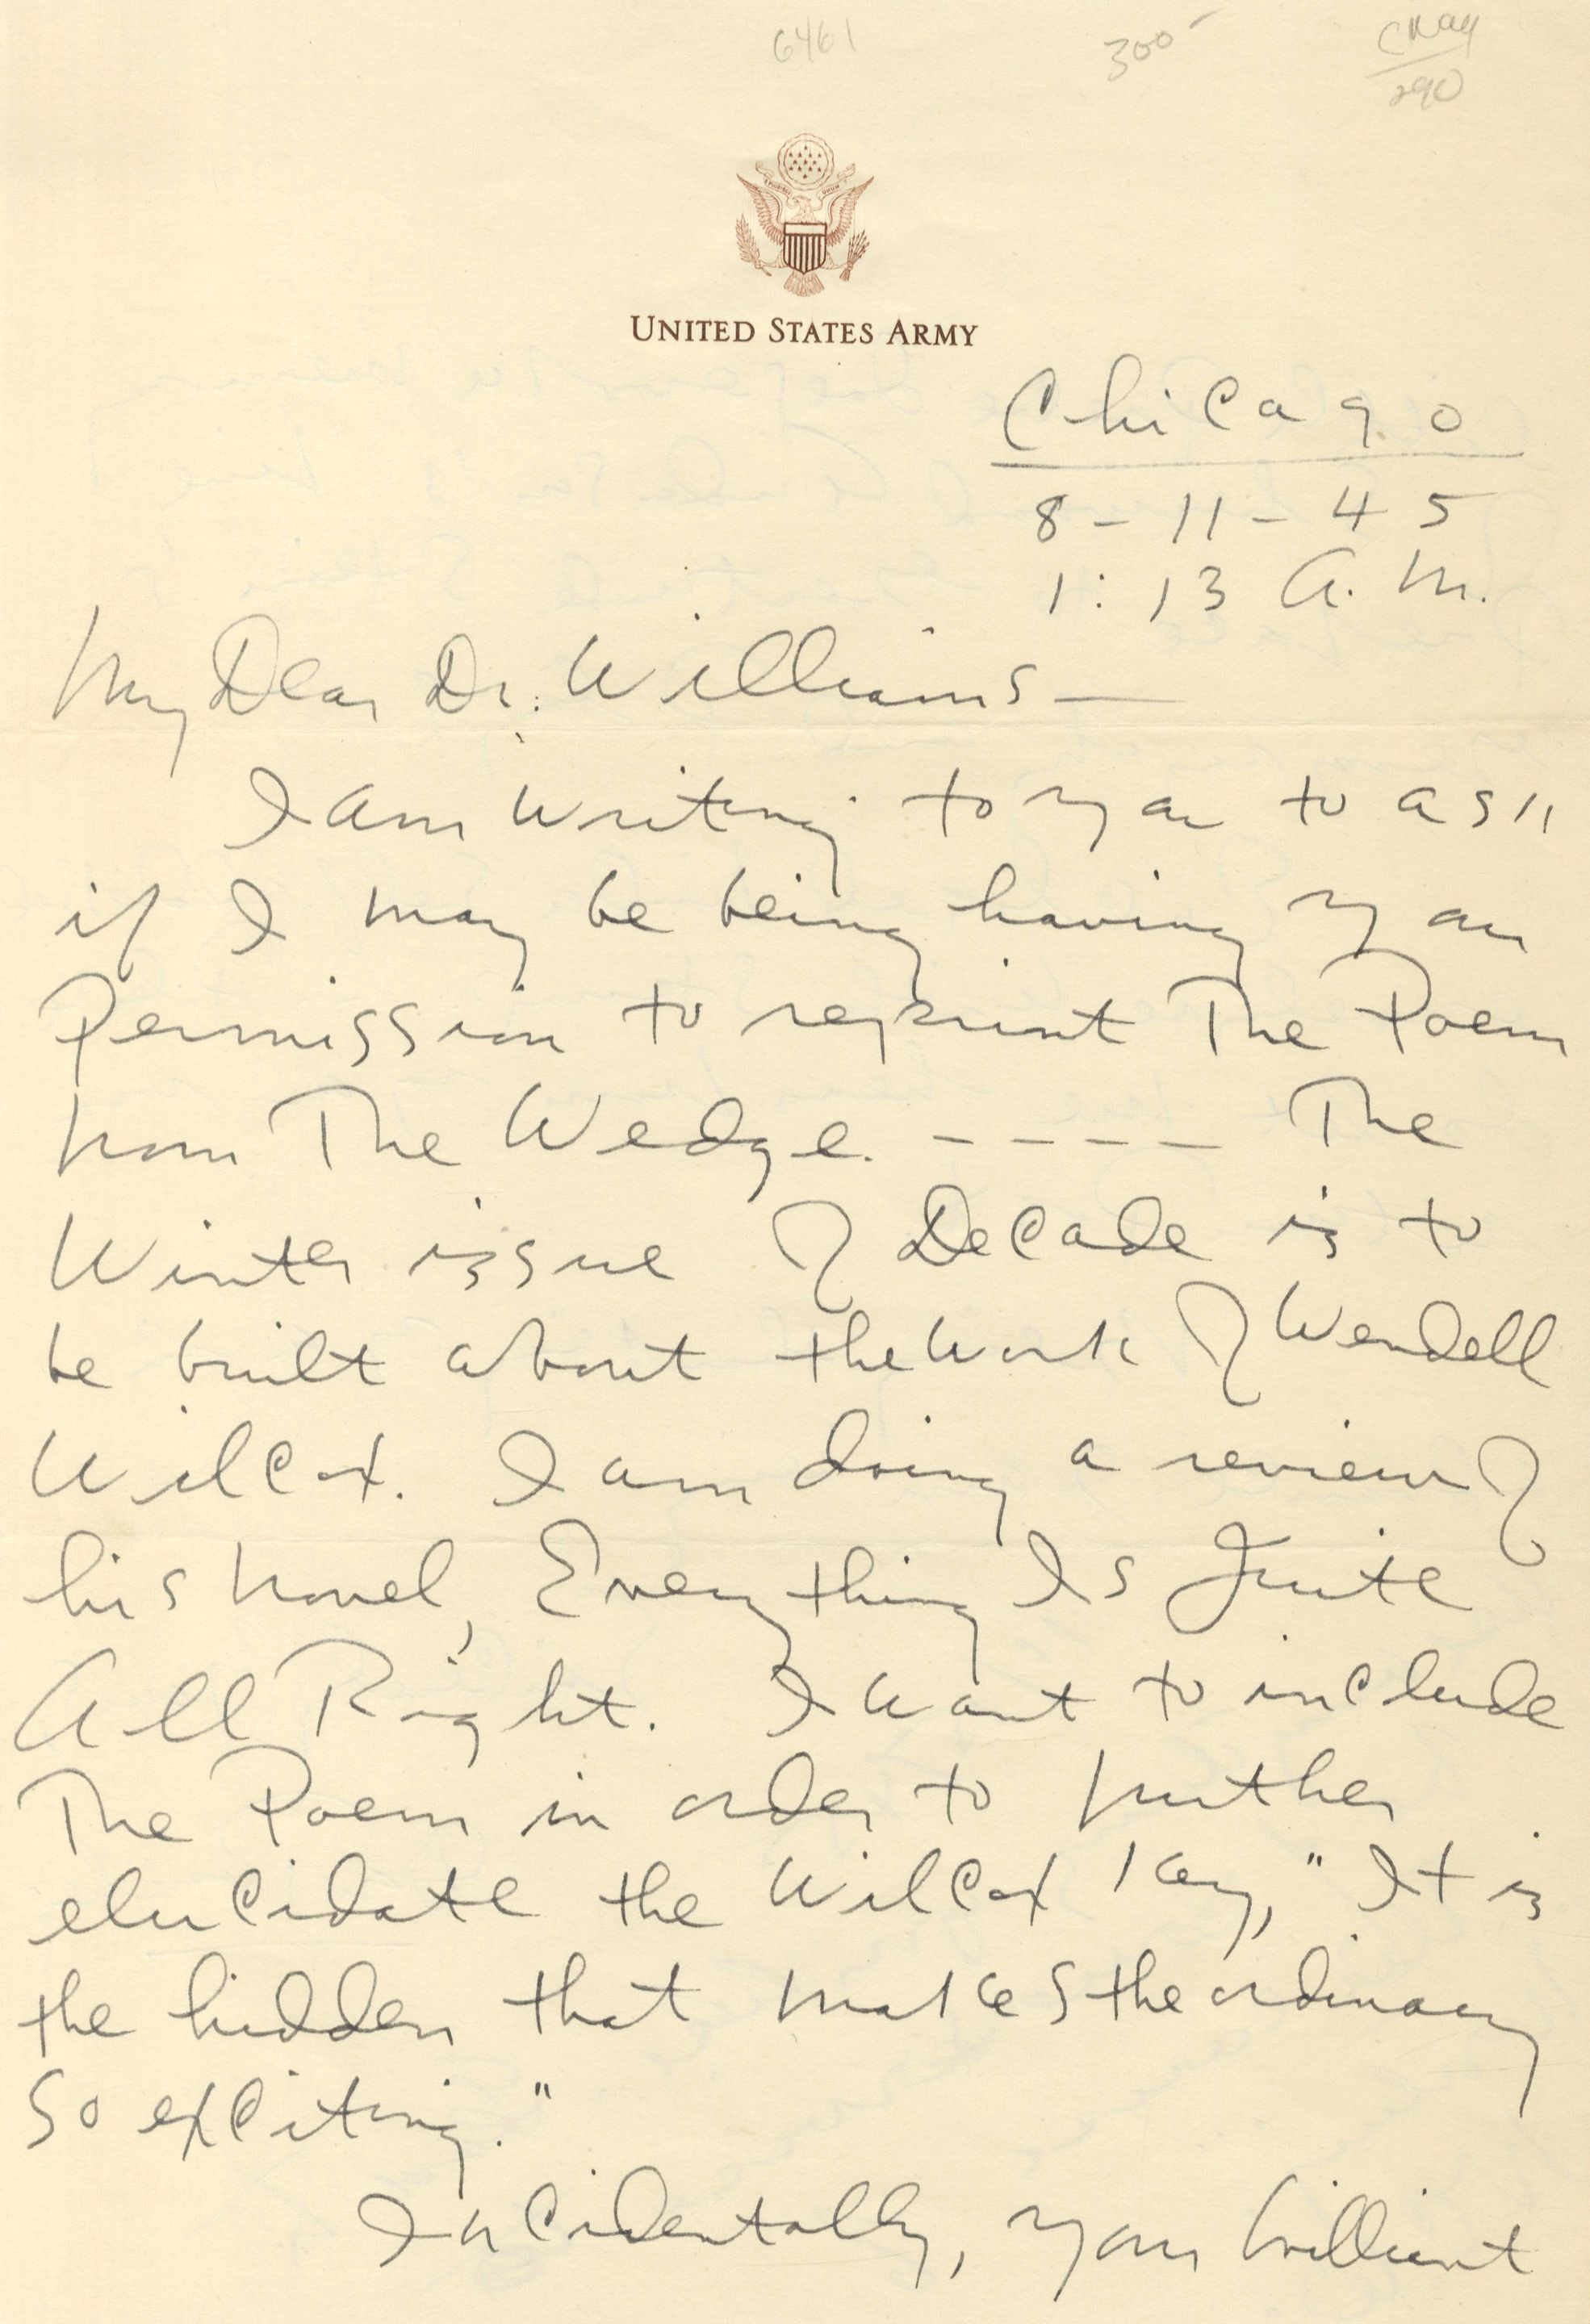 6461 300-
290
UNITED STATES ARMY
Chicago
8-11-45
1:13 A.M.
My Dear Dr. Williams —
I am writing to you to ask
if I may be being having you
Permission to reprint The Poem
from The Wedge. - - - - The
Winter issue of Decade is to
be built about the work of Wendell
Wilcox. I am doing a review of
his novel, Everything Is Quite
All Right. I want to include
The Poem in order to further
elucidate the Wilcox key, "It is
the hidden that makes the ordinary
so exciting."
Incidentally, your brilliant